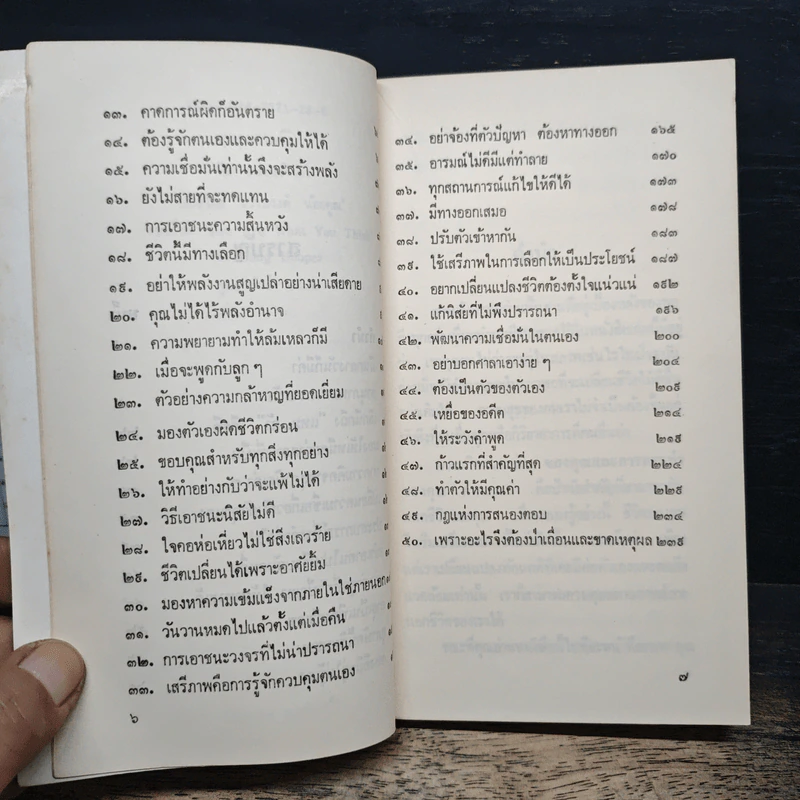 ๑๓. คาดการณ์ผิดก็อันตราย
๑๔. ต้องรู้จักตนเองและควบคุมให้ได้
๑๕. ความเชื่อมั่นเท่านั้นจึงจะสร้างพลัง
๑๖. ยังไม่สายที่จะทดแทน
๑๗. การเอาชนะความสิ้นหวัง
๑๘. ชีวิตนี้มีทางเลือก
๑๙. อย่าให้พลังงานสูญเปล่าอย่างน่าเสียดาย
๒๐. คุณไม่ได้ไร้พลังอำนาจ
๒๑. ความพยายามทำให้ล้มเหลวก็มี
๒๒. เมื่อจะพูดกับลูก ๆ
๒๓. ตัวอย่างความกล้าหาญที่ยอดเยี่ยม
๒๔. มองตัวเองผิดชีวิตกร่อน
๒๕. ขอบคุณสำหรับทุกสิ่งทุกอย่าง
๒๖. ให้ทำอย่างกับว่าจะแพ้ไม่ได้
๒๗. วิธีเอาชนะนิสัยไม่ดี
๒๘. ใจคอห่อเหี่ยวไม่ใช่สิ่งเลวร้าย
๒๙. ชีวิตเปลี่ยนได้เพราะอาศัยยิ้ม
๓๐. มองหาความเข้มแข็งจากภายในใช่ภายนอก
๓๑. วันวานหมดไปแล้วตั้งแต่เมื่อคืน
๓๒. การเอาชนะวงจรที่ไม่น่าปรารถนา
๓๓. เสรีภาพคือการรู้จักควบคุมตนเอง
๖
๓๔. อย่าจ้องที่ตัวปัญหา ต้องหาทางออก ๑๖๕
๓๕. อารมณ์ไม่ดีมีแต่ทำลาย ๑๗๐
๓๖. ทุกสถานการณ์แก้ไขให้ดีได้ ๑๗๓
๓๗. มีทางออกเสมอ ๑๗๘
๓๘. ปรับตัวเข้าหากัน ๑๘๓
๓๙. ใช้เสรีภาพในการเลือกให้เป็นประโยชน์ ๑๘๗
๔๐. อยากเปลี่ยนแปลงชีวิตต้องตั้งใจแน่วแน่ ๑๙๒
๔๑. แก้นิสัยที่ไม่พึงปรารถนา ๑๙๖
๔๒. พัฒนาความเชื่อมั่นในตนเอง ๒๐๐
๔๓. อย่าบอกศาลาเอาง่าย ๆ ๒๐๔
๔๔. ต้องเป็นตัวของตัวเอง ๒๐๙
๔๕. เหยื่อของอดีต ๒๑๔
๔๖. ให้ระวังคำพูด ๒๑๙
๔๗. ก้าวแรกที่สำคัญที่สุด ๒๒๔
๔๘. ทำตัวให้มีคุณค่า ๒๒๙
๔๙. กฎแห่งการสนองตอบ ๒๓๔
๕๐. เพราะอะไรจึงต้องป่าเถื่อนและขาดเหตุผล ๒๓๙
๗